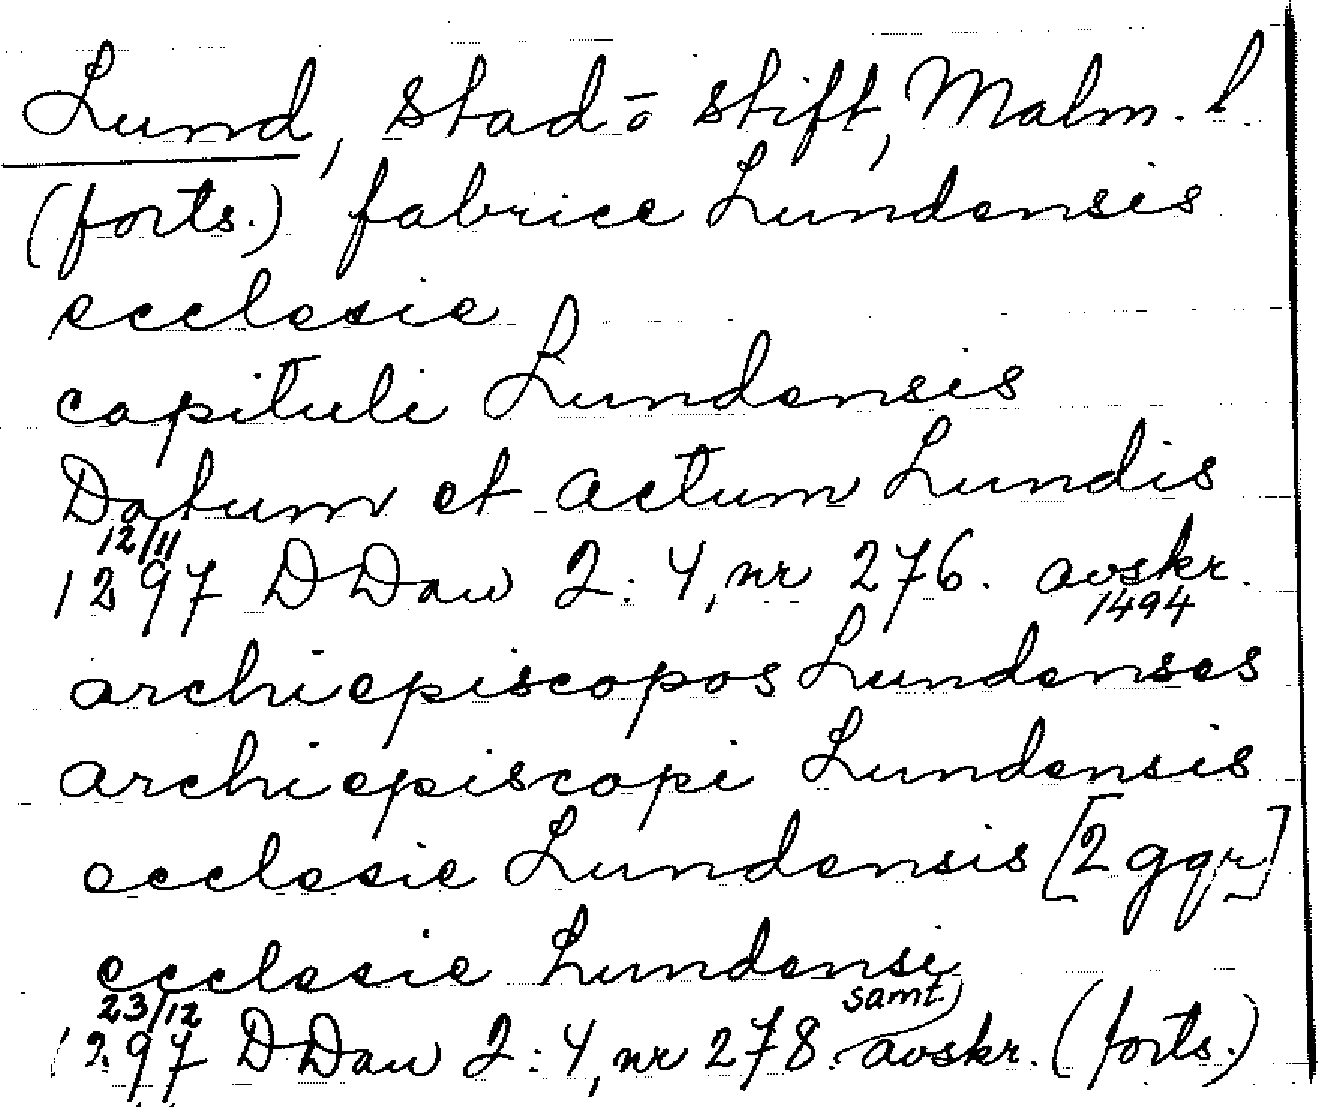 Lund, stad o stift, Malm. l.
(forts.) fabrice Lundensis
ecclesie
capituli Lundensis
Datum et actum Lundis
12/11
1297 DDan 2:4, nr 276. avskr.
1494
archiepiscopos Lundenses
archiepiscopi Lundensis
ecclesie Lundensis [2 ggr]
ecclesie Lundensi
23/12 samt.
1297 DDan 2:4, nr 278. avskr. (forts.)